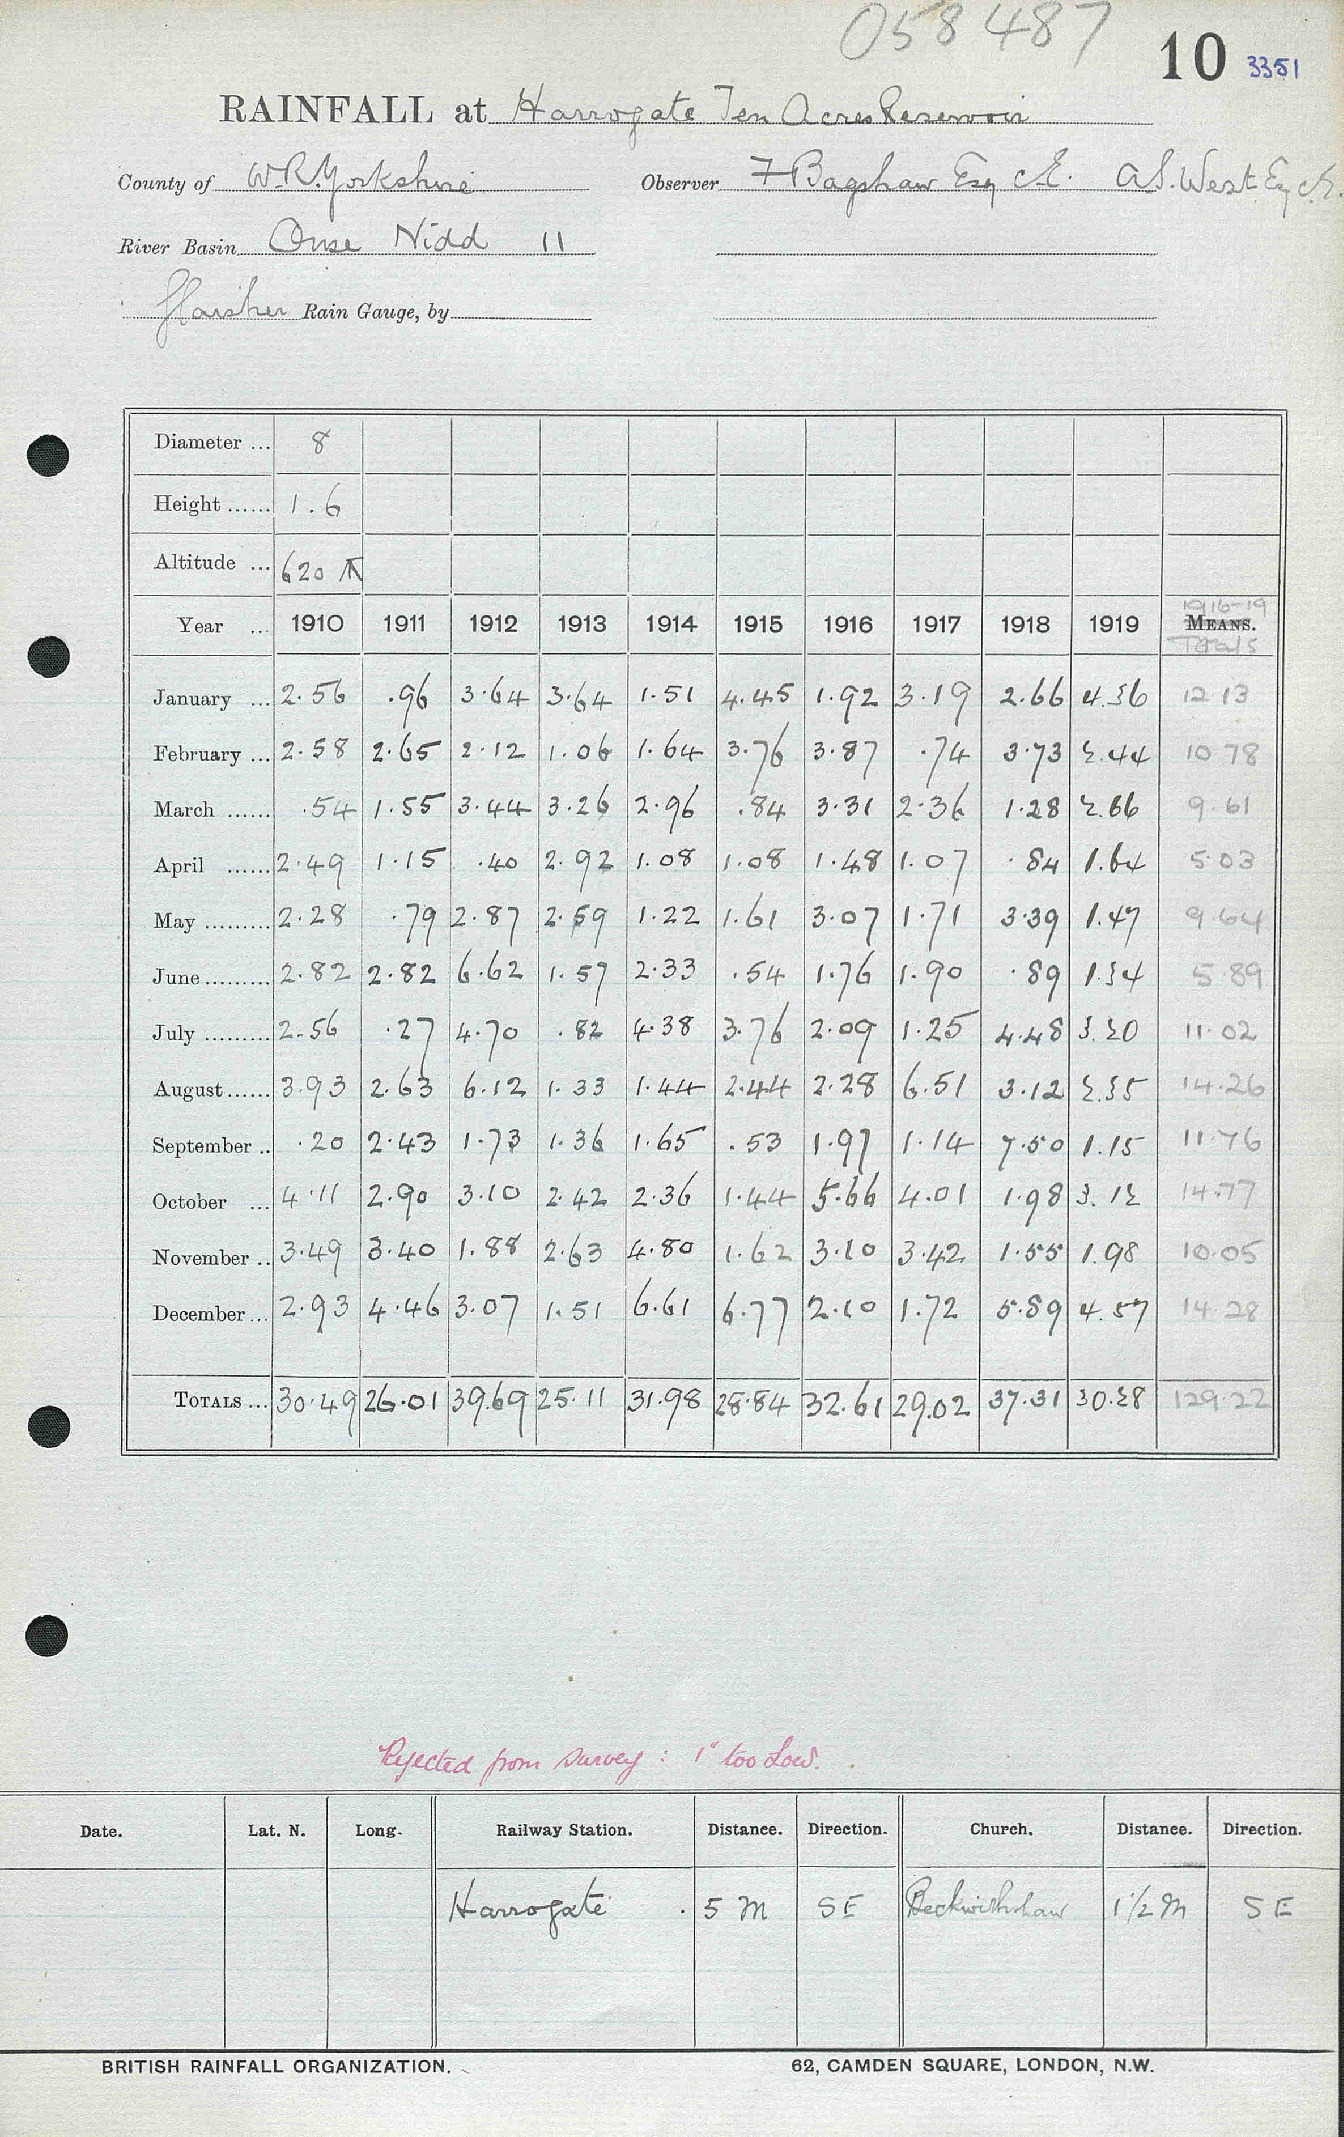 058487
10 3351
RAINFALL at Harrogate Ten Acres Reservoir
County of W.R. Yorkshire Observer F Bagshaw Esq C.E. A.S. West Esq C.E.
River Basin Ouse Nidd 11
Glaisher Rain Gauge, by
Diameter ... 8
Height ...... 1.6
Altitude ... 620 ft
1916-19
Year ... 1910 1911 1912 1913 1914 1915 1916 1917 1918 1919 MEANS.
Totals
January ... 2.56 .96 3.64 3.64 1.51 4.45 1.92 3.19 2.66 4.36 12.13
February ... 2.58 2.65 2.12 1.06 1.64 3.76 3.87 .74 3.73 2.44 10.78
March ...... .54 1.55 3.44 3.26 2.96 .84 3.31 2.36 1.28 2.66 9.61
April ...... 2.49 1.15 .40 2.92 1.08 1.08 1.48 1.07 .84 1.64 5.03
May ......... 2.28 .79 2.87 2.59 1.22 1.61 3.07 1.71 3.39 1.47 9.64
June ......... 2.82 2.82 6.62 1.57 2.33 .54 1.76 1.90 .89 1.34 5.89
July ......... 2.56 .27 4.70 .82 4.38 3.76 2.09 1.25 4.48 3.20 11.02
August ...... 3.93 2.63 6.12 1.33 1.44 2.44 2.28 6.51 3.12 2.35 14.26
September .. .20 2.43 1.73 1.36 1.65 .53 1.97 1.14 7.50 1.15 11.76
October ... 4.11 2.90 3.10 2.42 2.36 1.44 5.66 4.01 1.98 3.12 14.77
November .. 3.49 3.40 1.88 2.63 4.80 1.62 3.10 3.42 1.55 1.98 10.05
December ... 2.93 4.46 3.07 1.51 6.61 6.77 2.10 1.72 5.89 4.57 14.28
TOTALS ... 30.49 26.01 39.69 25.11 31.98 28.84 32.61 29.02 37.31 30.28 129.22
Rejected from survey : 1" too Low.
Date. Lat. N. Long. Railway Station. Distance. Direction. Church. Distance. Direction.
Harrogate . 5 M SE Beckwithshaw 1 1/2 M SE
BRITISH RAINFALL ORGANIZATION. 62, CAMDEN SQUARE, LONDON, N.W.